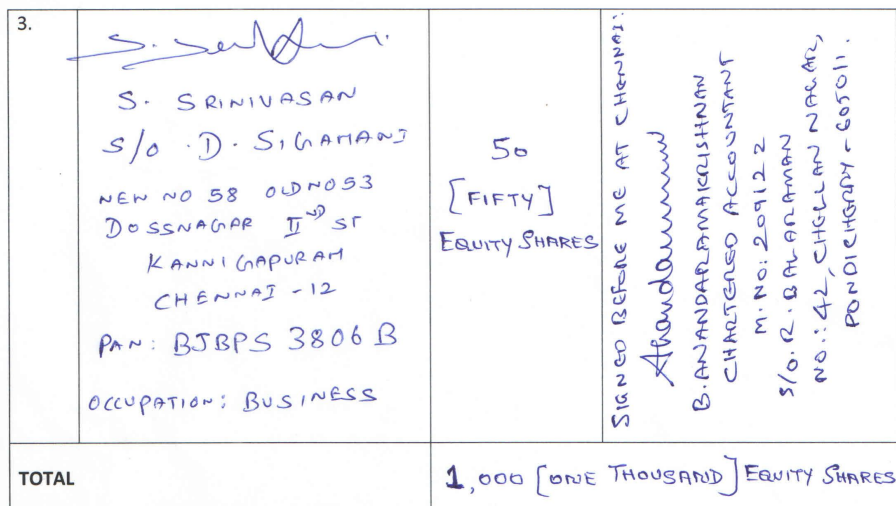 3.
S. SRINIVASAN
S/O . D . SIGAMANI
NEW NO 58 OLD NO 53
DOSSNAGAR IIND ST
KANNIGAPURAM
CHENNAI -12
PAN: BJBPS 3806 B
OCCUPATION: BUSINESS
50
[FIFTY]
EQUITY SHARES
SIGNED BEFORE ME AT CHENNAI:
B. ANANDARAMAKRISHNAN
CHARTERED ACCOUNTANT
M. NO: 209122
S/O. R. BALARAMAN
NO.: 42, CHELLAN NAGAR,
PONDICHERRY - 605011.
TOTAL
1,000 [ONE THOUSAND] EQUITY SHARES